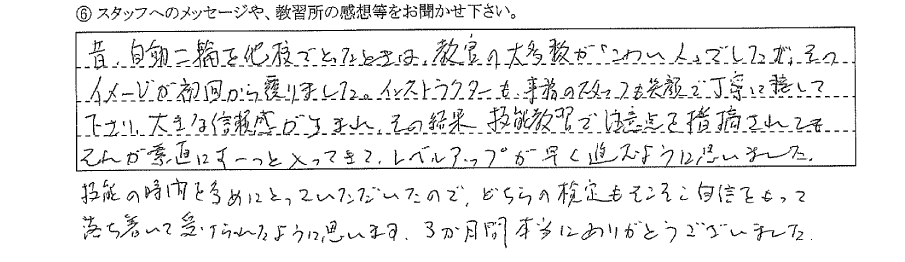 ⑥ スタッフへのメッセージや、教習所の感想等をお聞かせ下さい。
昔、自動二輪を他校でとったときは、教官の大多数が「こわい人」でしたが、その
イメージが初回から覆りました。インストラクターも事務のスタッフも笑顔で丁寧に接して
下さり、大きな信頼感がうまれ、その結果 技能教習で注意点を指摘されても
それが素直にすーっと入ってきて、レベルアップが早く進むように思いました。
技能の時間を多めにとっていただいたので、どちらの検定もそこそこ自信をもって
落ち着いて受けられたように思います。3か月間本当にありがとうございました。